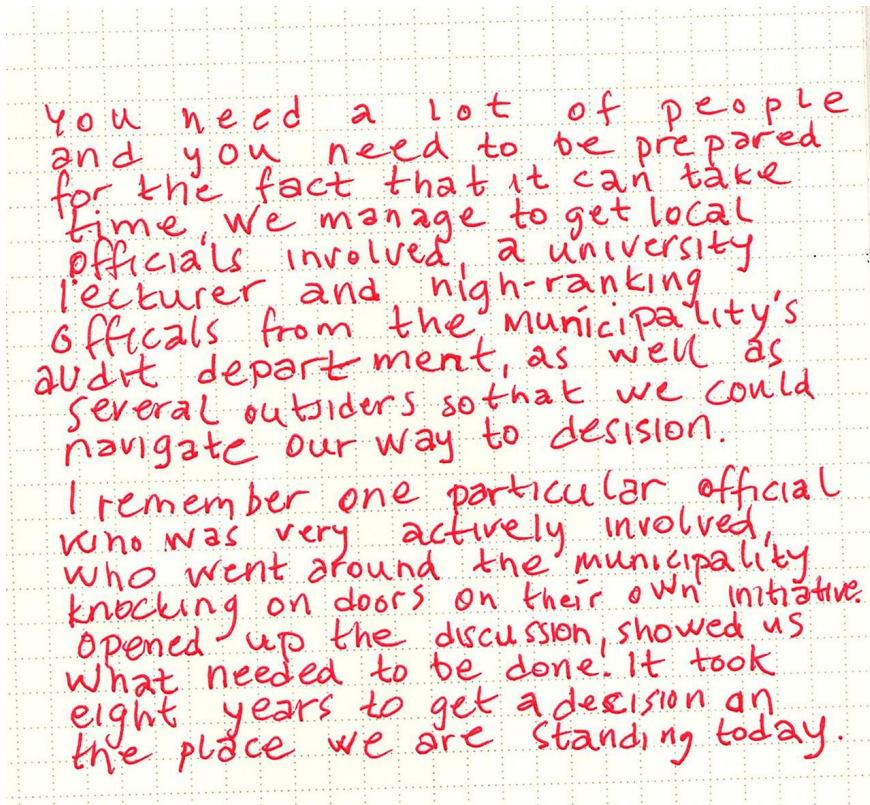 You need a lot of people
and you need to be prepared
for the fact that it can take
time, we manage to get local
officials involved, a university
lecturer and high-ranking
officals from the municipality's
audit department, as well as
several outsiders so that we could
navigate our way to desision.
I remember one particular official
who was very actively involved,
who went around the municipality
knocking on doors on their own initiative.
opened up the discussion, showed us
what needed to be done. It took
eight years to get a decision on
the place we are standing today.